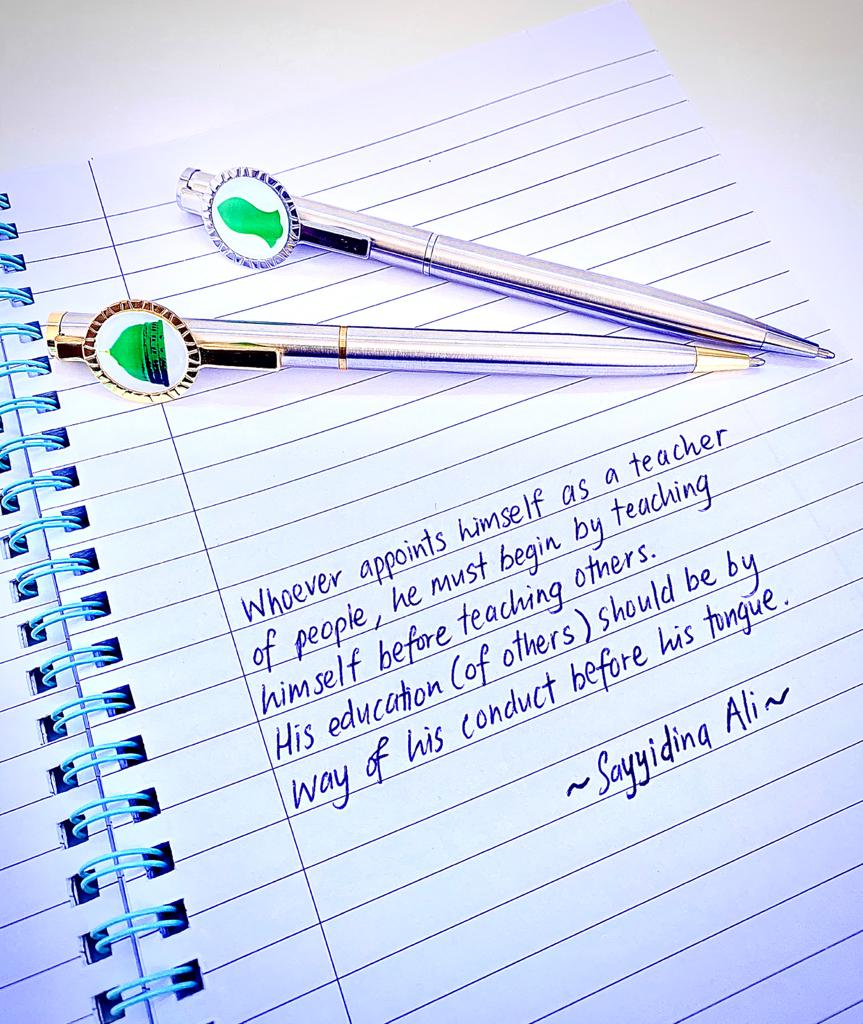 Whoever appoints himself as a teacher
of people, he must begin by teaching
himself before teaching others.
His education (of others) should be by
way of his conduct before his tongue.
~Sayyidina Ali~